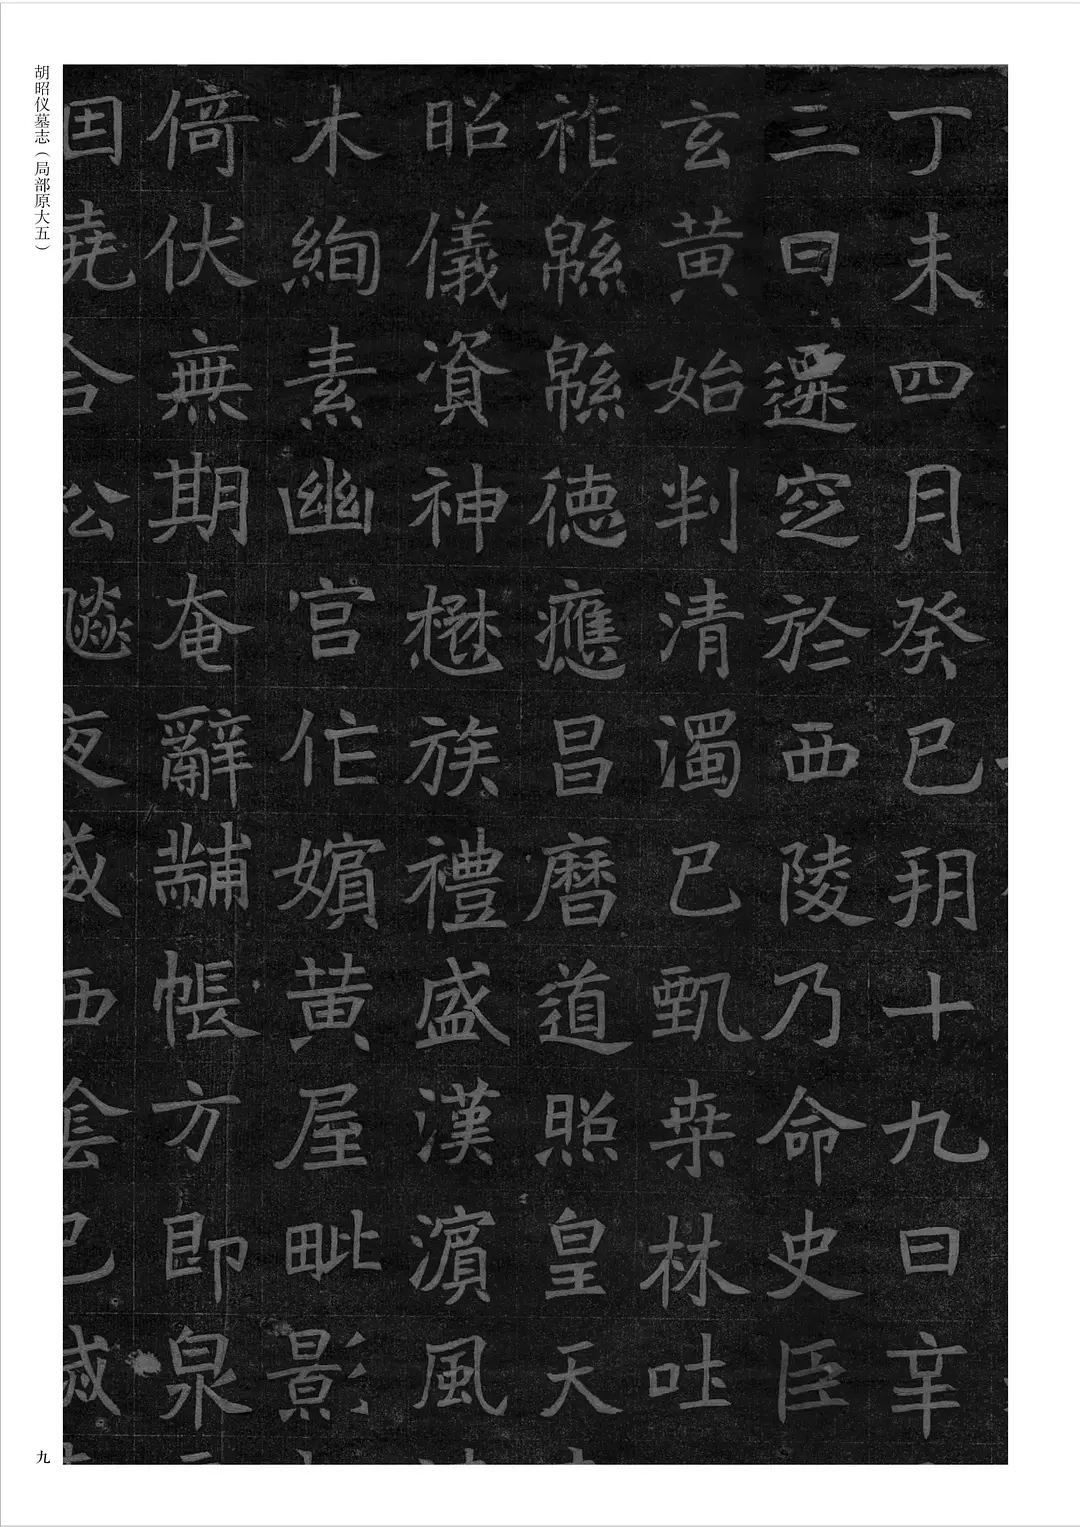 丁未四月癸巳玥十九日辛
三曰遷窆於西陵乃命史臣
玄黄始判清濁已甄桒林吐
祚緜緜德應昌暦道照皇天
昭儀資神懋族禮盛漢濱風
木絢素幽宫作嬪黄屋毗影
倚伏無期奄辭黼帳方即泉
田 合松 夜 西
胡昭仪墓志（局部原大五）
九